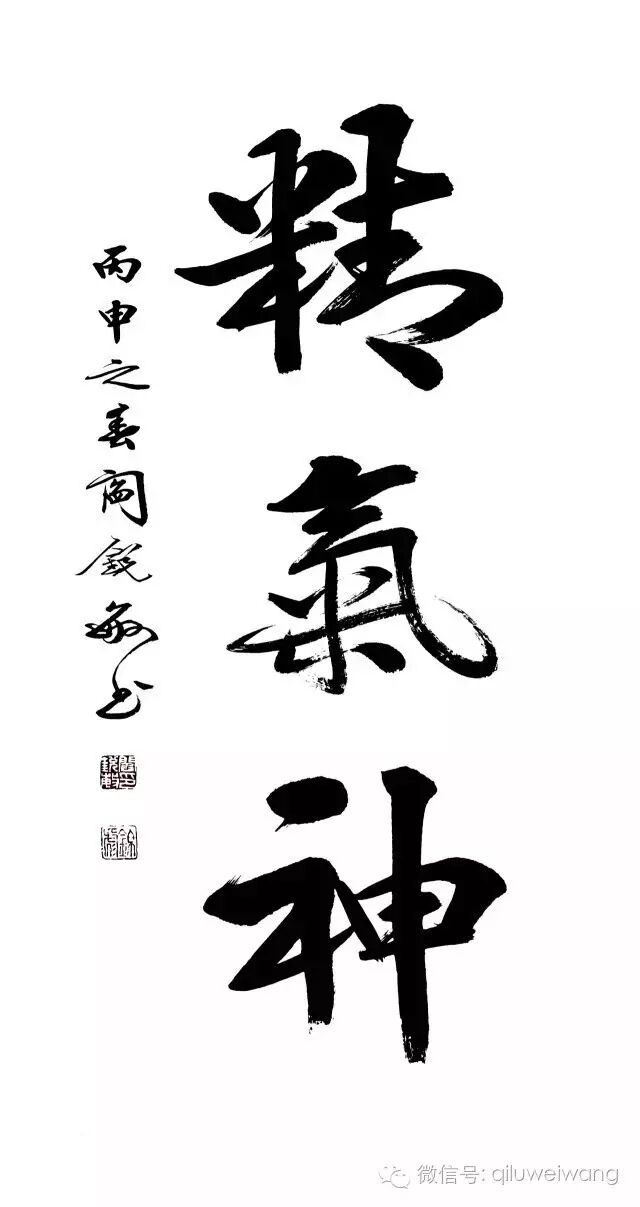 精氣神
丙申之春閻銳敏书
微信号: qiluweiwang